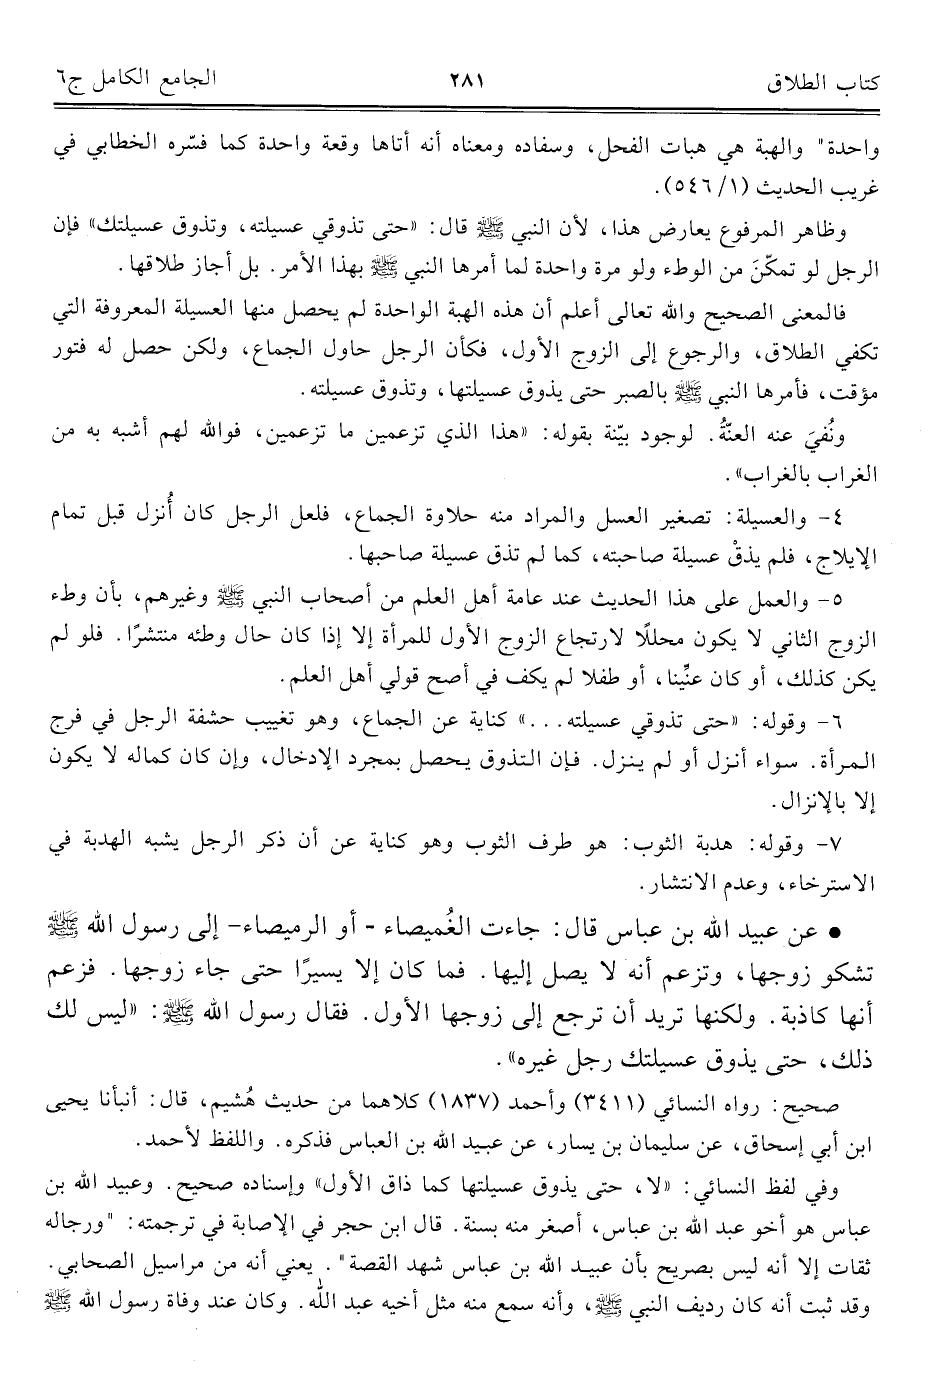 كتاب الطلاق ٢٨١ الجامع الكامل ج٦
واحدة" والهبة هي هبات الفحل، وسفاده ومعناه أنه أتاها وقعة واحدة كما فسّره الخطابي في
غريب الحديث (١/ ٥٤٦).
وظاهر المرفوع يعارض هذا، لأن النبي ﷺ قال: «حتى تذوقي عسيلته، وتذوق عسيلتك» فإن
الرجل لو تمكّنَ من الوطء ولو مرة واحدة لما أمرها النبي ﷺ بهذا الأمر. بل أجاز طلاقها.
فالمعنى الصحيح والله تعالى أعلم أن هذه الهبة الواحدة لم يحصل منها العسيلة المعروفة التي
تكفي الطلاق، والرجوع إلى الزوج الأول، فكأن الرجل حاول الجماع، ولكن حصل له فتور
مؤقت، فأمرها النبي ﷺ بالصبر حتى يذوق عسيلتها، وتذوق عسيلته.
ونُفيَ عنه العنّةُ. لوجود بيّنة بقوله: «هذا الذي تزعمين ما تزعمين، فوالله لهم أشبه به من
الغراب بالغراب».
٤- والعسيلة: تصغير العسل والمراد منه حلاوة الجماع، فلعل الرجل كان أُنزل قبل تمام
الإيلاج، فلم يذقْ عسيلة صاحبته، كما لم تذق عسيلة صاحبها.
٥- والعمل على هذا الحديث عند عامة أهل العلم من أصحاب النبي ﷺ وغيرهم، بأن وطء
الزوج الثاني لا يكون محللًا لارتجاع الزوج الأول للمرأة إلا إذا كان حال وطئه منتشرًا. فلو لم
يكن كذلك، أو كان عنِّينا، أو طفلا لم يكف في أصح قولي أهل العلم.
٦- وقوله: «حتى تذوقي عسيلته...» كناية عن الجماع، وهو تغييب حشفة الرجل في فرج
المرأة. سواء أنزل أو لم ينزل. فإن التذوق يحصل بمجرد الإدخال، وإن كان كماله لا يكون
إلا بالإنزال.
٧- وقوله: هدبة الثوب: هو طرف الثوب وهو كناية عن أن ذكر الرجل يشبه الهدبة في
الاسترخاء، وعدم الانتشار.
• عن عبيد الله بن عباس قال: جاءت الغُميصاء - أو الرميصاء- إلى رسول الله ﷺ
تشكو زوجها، وتزعم أنه لا يصل إليها. فما كان إلا يسيرًا حتى جاء زوجها. فزعم
أنها كاذبة. ولكنها تريد أن ترجع إلى زوجها الأول. فقال رسول الله ﷺ: «ليس لك
ذلك، حتى يذوق عسيلتك رجل غيره».
صحيح: رواه النسائي (٣٤١١) وأحمد (١٨٣٧) كلاهما من حديث هُشيم، قال: أنبأنا يحيى
ابن أبي إسحاق، عن سليمان بن يسار، عن عبيد الله بن العباس فذكره. واللفظ لأحمد.
وفي لفظ النسائي: «لا، حتى يذوق عسيلتها كما ذاق الأول» وإسناده صحيح. وعبيد الله بن
عباس هو أخو عبد الله بن عباس، أصغر منه بسنة. قال ابن حجر في الإصابة في ترجمته: "ورجاله
ثقات إلا أنه ليس بصريح بأن عبيد الله بن عباس شهد القصة". يعني أنه من مراسيل الصحابي.
وقد ثبت أنه كان رديف النبي ﷺ، وأنه سمع منه مثل أخيه عبد الله. وكان عند وفاة رسول الله ﷺ